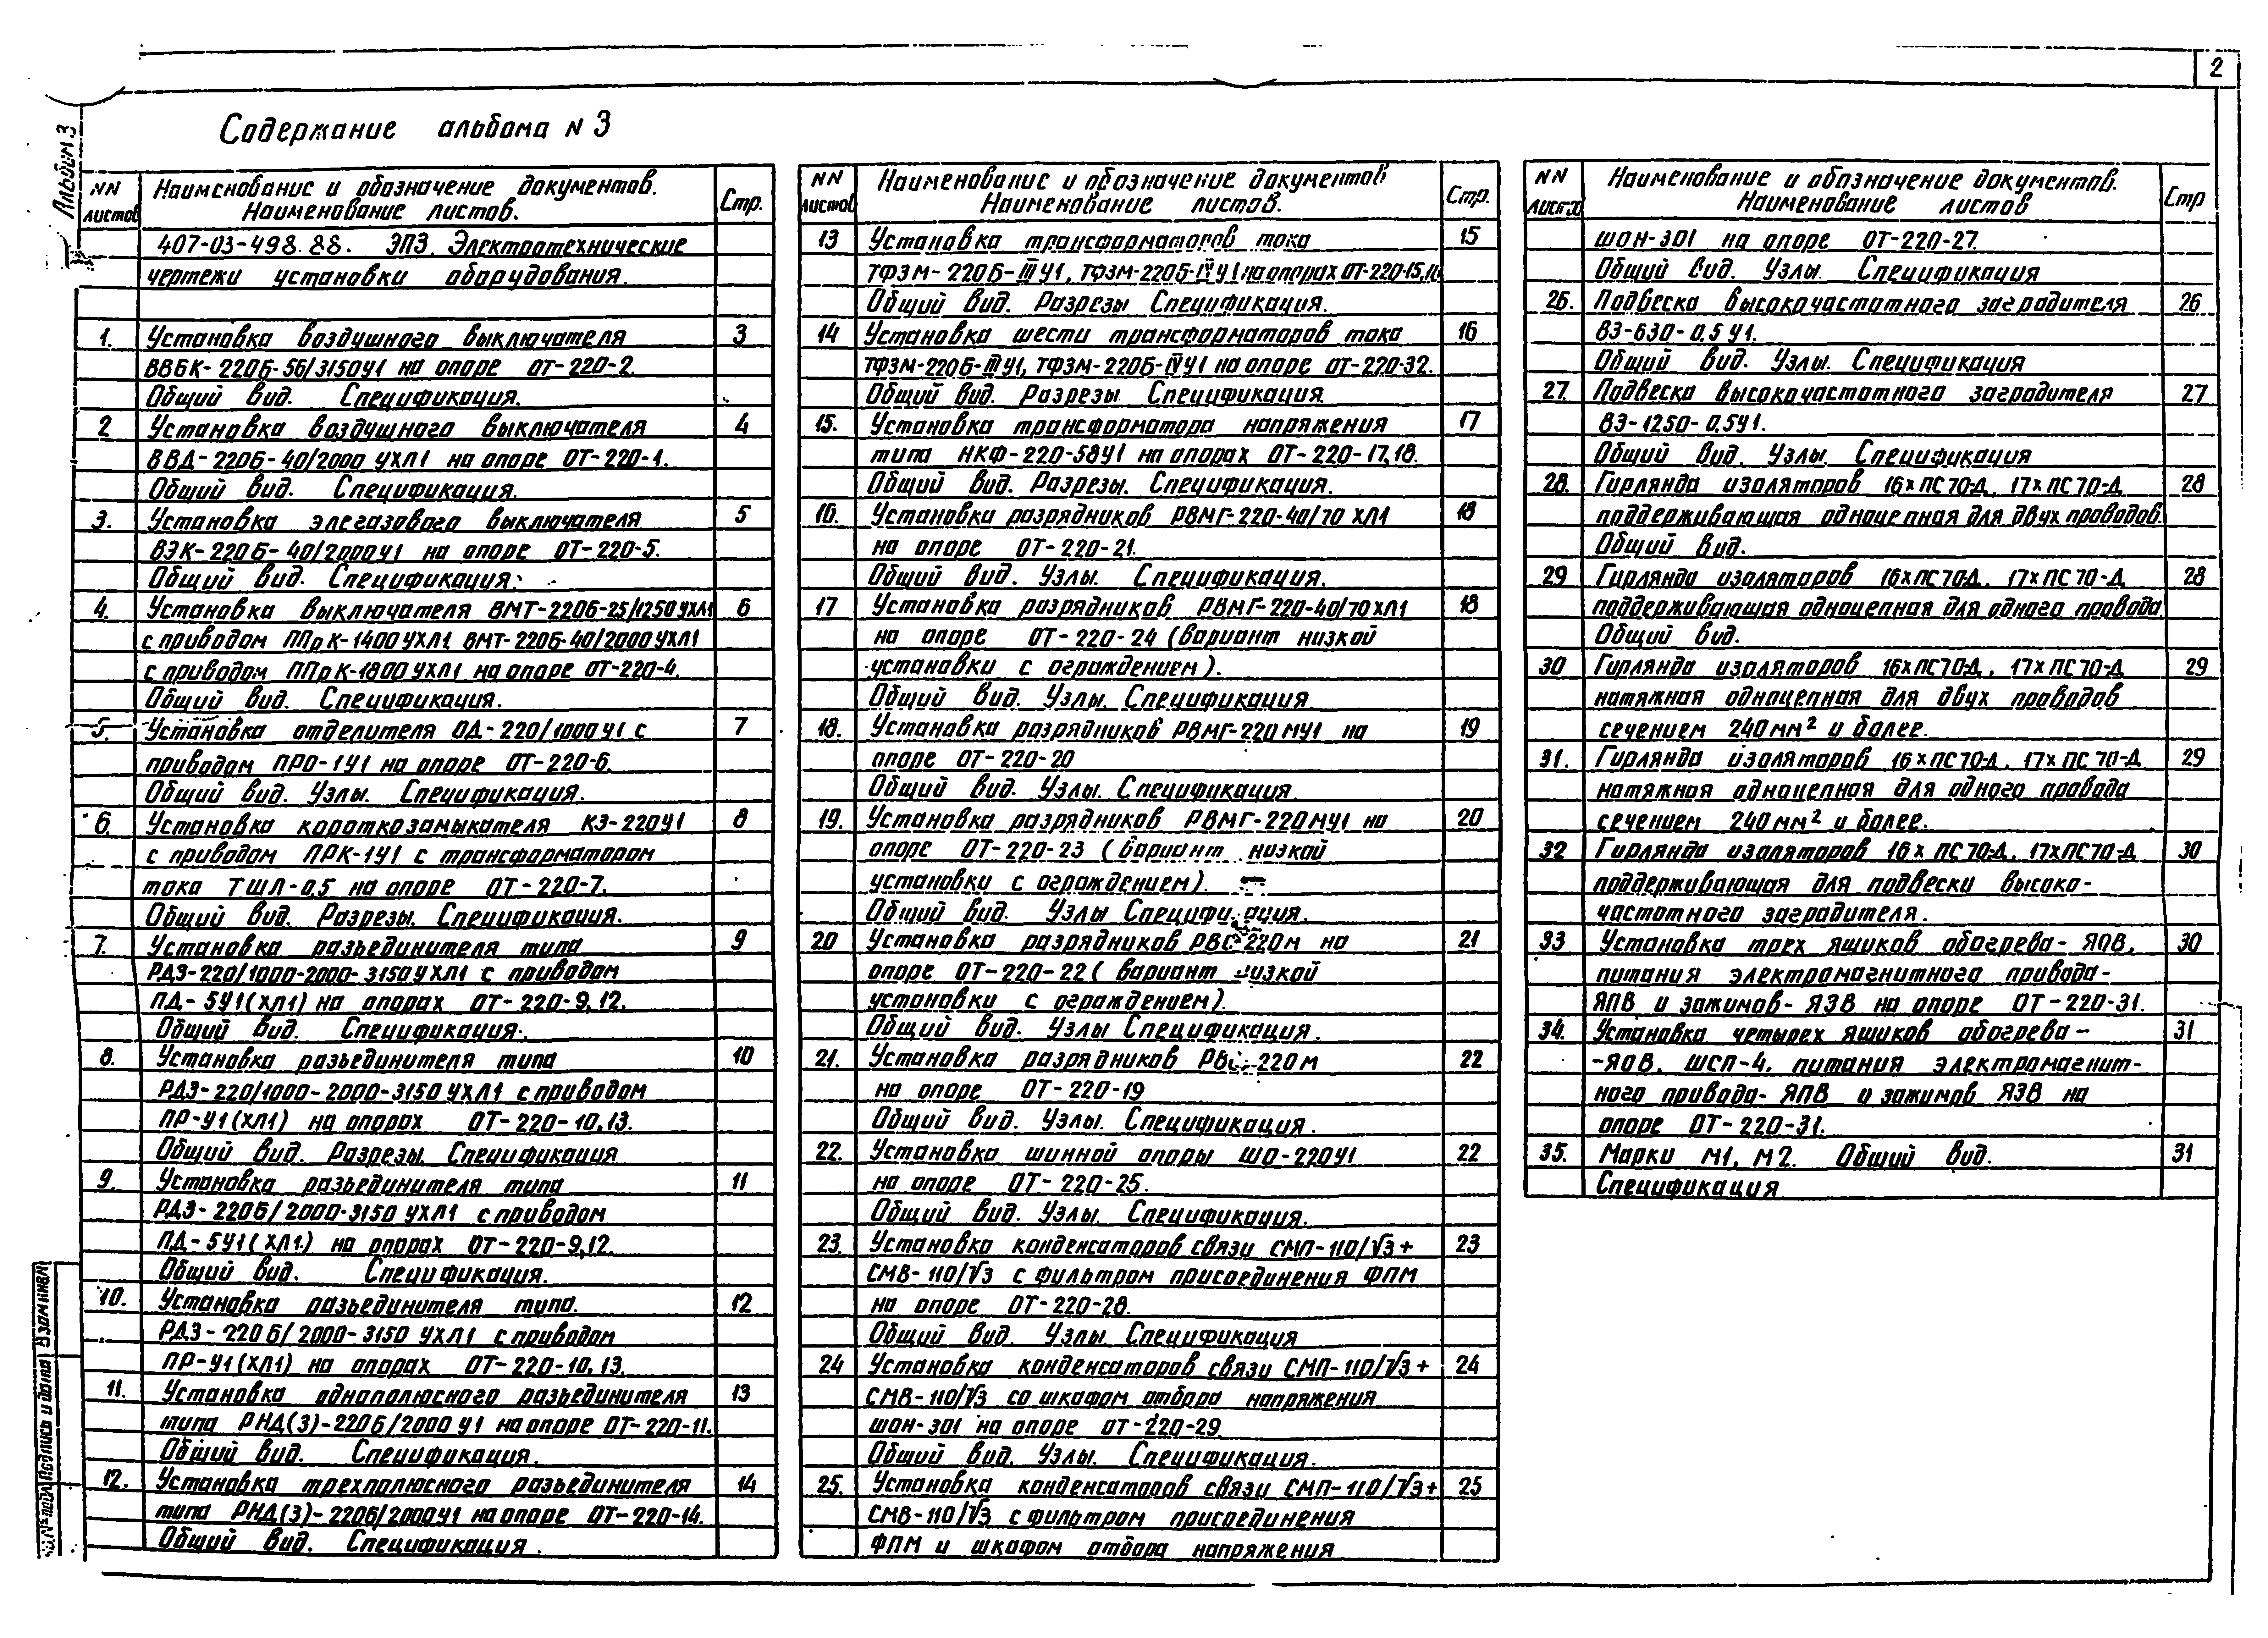 2
Альбом 3
Содержание альбома N 3
NN листов
Наименование и обозначение документов.
Наименование листов.
Стр.
407-03-498.88. ЭП3. Электротехнические
чертежи установки оборудования.
1. Установка воздушного выключателя 3
ВВБК-220Б-56/3150У1 на опоре ОТ-220-2.
Общий вид. Спецификация.
2 Установка воздушного выключателя 4
ВВД-220Б-40/2000 УХЛ1 на опоре ОТ-220-1.
Общий вид. Спецификация.
3. Установка элегазового выключателя 5
ВЭК-220Б-40/2000У1 на опоре ОТ-220-5.
Общий вид. Спецификация.
4. Установка выключателя ВМТ-220Б-25/1250 УХЛ1 6
с приводом ППрК-1400 УХЛ1, ВМТ-220Б-40/2000 УХЛ1
с приводом ППрК-1800 УХЛ1 на опоре ОТ-220-4.
Общий вид. Спецификация.
5. Установка отделителя ОД-220/1000 У1 с 7
приводом ПРО-1У1 на опоре ОТ-220-6.
Общий вид. Узлы. Спецификация.
6. Установка короткозамыкателя КЗ-220У1 8
с приводом ПРК-1У1 с трансформатором
тока ТШЛ-0,5 на опоре ОТ-220-7.
Общий вид. Разрезы. Спецификация.
7. Установка разъединителя типа 9
РДЗ-220/1000-2000-3150 УХЛ1 с приводом
ПД-5У1(ХЛ1) на опорах ОТ-220-9,12.
Общий вид. Спецификация.
8. Установка разъединителя типа 10
РДЗ-220/1000-2000-3150 УХЛ1 с приводом
ПР-У1(ХЛ1) на опорах ОТ-220-10,13.
Общий вид. Разрезы. Спецификация
9. Установка разъединителя типа 11
РДЗ-220Б/2000-3150 УХЛ1 с приводом
ПД-5У1(ХЛ1.) на опорах ОТ-220-9,12.
Общий вид. Спецификация.
10. Установка разъединителя типа. 12
РДЗ-220Б/2000-3150 УХЛ1 с приводом
ПР-У1(ХЛ1) на опорах ОТ-220-10,13.
11. Установка однополюсного разъединителя 13
типа РНД(З)-220Б/2000 У1 на опоре ОТ-220-11.
Общий вид. Спецификация.
12. Установка трехполюсного разъединителя 14
типа РНД(З)-220Б/2000У1 на опоре ОТ-220-14.
Общий вид. Спецификация.
NN листов
Наименование и обозначение документов
Наименование листов.
Стр.
13 Установка трансформаторов тока 15
ТФЗМ-220Б-IIIУ1, ТФЗМ-220Б-IVУ1 на опорах ОТ-220-15,16
Общий вид. Разрезы Спецификация.
14 Установка шести трансформаторов тока 16
ТФЗМ-220Б-IIIУ1, ТФЗМ-220Б-IVУ1 на опоре ОТ-220-32.
Общий вид. Разрезы. Спецификация.
15. Установка трансформатора напряжения 17
типа НКФ-220-58У1 на опорах ОТ-220-17,18.
Общий вид. Разрезы. Спецификация.
16. Установки разрядников РВМГ-220-40/70 ХЛ1 18
на опоре ОТ-220-21.
Общий вид. Узлы. Спецификация.
17 Установка разрядников РВМГ-220-40/70ХЛ1 18
на опоре ОТ-220-24 (вариант низкой
установки с ограждением).
Общий вид. Узлы. Спецификация.
18. Установка разрядников РВМГ-220МУ1 на 19
опоре ОТ-220-20
Общий вид. Узлы. Спецификация.
19. Установка разрядников РВМГ-220МУ1 на 20
опоре ОТ-220-23 (вариант низкой
установки с ограждением).
Общий вид. Узлы Спецификация.
20 Установка разрядников РВС-220м на 21
опоре ОТ-220-22 (вариант низкой
установки с ограждением).
Общий вид. Узлы Спецификация.
21. Установка разрядников РВС-220м 22
на опоре ОТ-220-19
Общий вид. Узлы. Спецификация.
22. Установка шинной опоры ШО-220У1 22
на опоре ОТ-220-25.
Общий вид. Узлы. Спецификация.
23. Установка конденсаторов связи СМП-110/√3+ 23
СМВ-110/√3 с фильтром присоединения ФПМ
на опоре ОТ-220-28.
Общий вид. Узлы. Спецификация
24 Установка конденсаторов связи СМП-110/√3+ 24
СМВ-110/√3 со шкафом отбора напряжения
ШОН-301 на опоре ОТ-220-29
Общий вид. Узлы. Спецификация.
25. Установка конденсаторов связи СМП-110/√3+ 25
СМВ-110/√3 с фильтром присоединения
ФПМ и шкафом отбора напряжения
NN листов
Наименование и обозначение документов.
Наименование листов
Стр
ШОН-301 на опоре ОТ-220-27.
Общий вид. Узлы. Спецификация
26. Подвеска высокочастотного заградителя 26
ВЗ-630-0,5 У1.
Общий вид. Узлы. Спецификация
27. Подвеска высокочастотного заградителя 27
ВЗ-1250-0,5У1.
Общий вид. Узлы. Спецификация
28. Гирлянда изоляторов 16хПС70-Д, 17хПС70-Д 28
поддерживающая одноцепная для двух проводов.
Общий вид.
29 Гирлянда изоляторов 16хПС70-Д, 17хПС70-Д 28
поддерживающая одноцепная для одного провода
Общий вид.
30 Гирлянда изоляторов 16хПС70-Д, 17хПС70-Д 29
натяжная одноцепная для двух проводов
сечением 240мм² и более.
31. Гирлянда изоляторов 16хПС70-Д, 17хПС70-Д 29
натяжная одноцепная для одного провода
сечением 240мм² и более.
32 Гирлянда изоляторов 16хПС70-Д, 17хПС70-Д 30
поддерживающая для подвески высоко-
частотного заградителя.
33 Установка трех ящиков обогрева-ЯОВ, 30
питания электромагнитного привода-
ЯПВ и зажимов-ЯЗВ на опоре ОТ-220-31.
34. Установка четырех ящиков обогрева- 31
-ЯОВ, ШСП-4, питания электромагнит-
ного привода-ЯПВ и зажимов ЯЗВ на
опоре ОТ-220-31.
35. Марки М1, М2. Общий вид. 31
Спецификация
Взам.инв.N
Подпись и дата